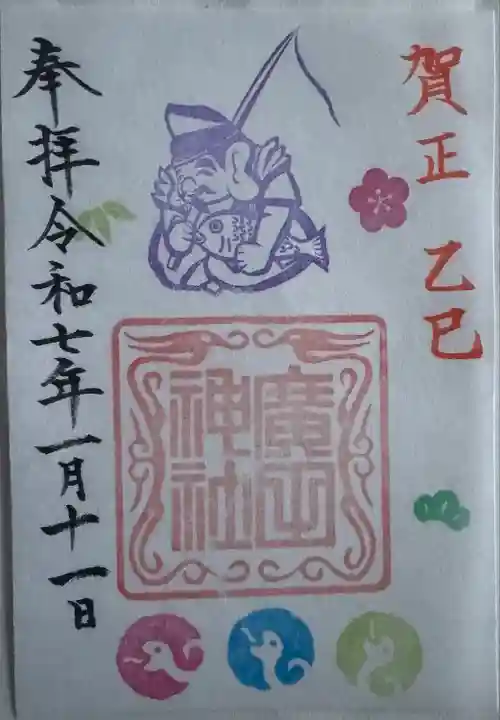 賀正 乙巳
廣田神社
奉拝令和七年一月十一日